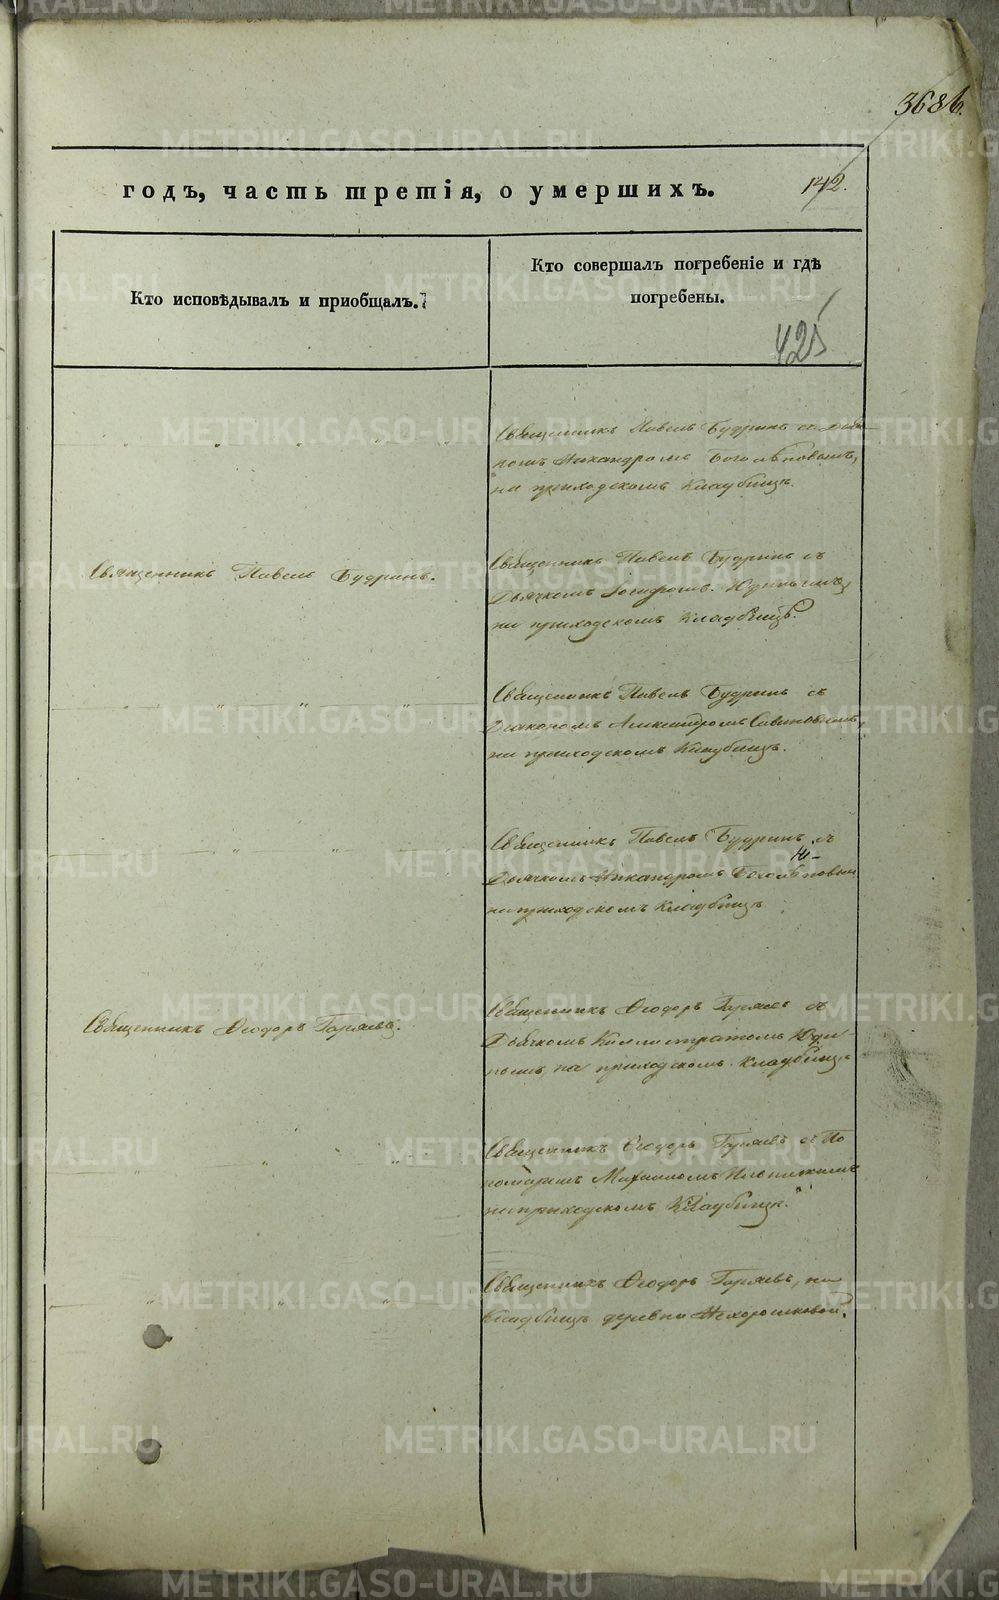 368 б.
142.
годъ, часть третія, о умершихъ.
Кто исповѣдывалъ и приобщалъ.
Кто совершалъ погребеніе и гдѣ
погребены.
425
Священникъ Павелъ Будринъ съ
Никандромъ Боголѣповымъ,
на приходскомъ Кладбищѣ.
Священникъ Павелъ Будринъ.
Священникъ Павелъ Будринъ съ
Дьячкомъ
на приходскомъ Кладбищѣ.
Священникъ Павелъ Будринъ съ
Диакономъ Александромъ
на приходскомъ Кладбищѣ.
Священникъ Павелъ Будринъ съ
Дьячкомъ Никандромъ Боголѣповым
на приходскомъ Кладбищѣ
Священникъ Ѳеодоръ Горяевъ.
Священникъ Ѳеодоръ Горяевъ съ
Дьячкомъ Каллистратомъ Юди-
нымъ, на приходскомъ Кладбищѣ
Священникъ Ѳеодоръ Горяевъ съ По
номаремъ Михаиломъ
на приходскомъ Кладбищѣ.
Священникъ Ѳеодоръ Горяевъ, на
Кладбищѣ деревни Нехорошковой.
METRIKI.GASO-URAL.RU